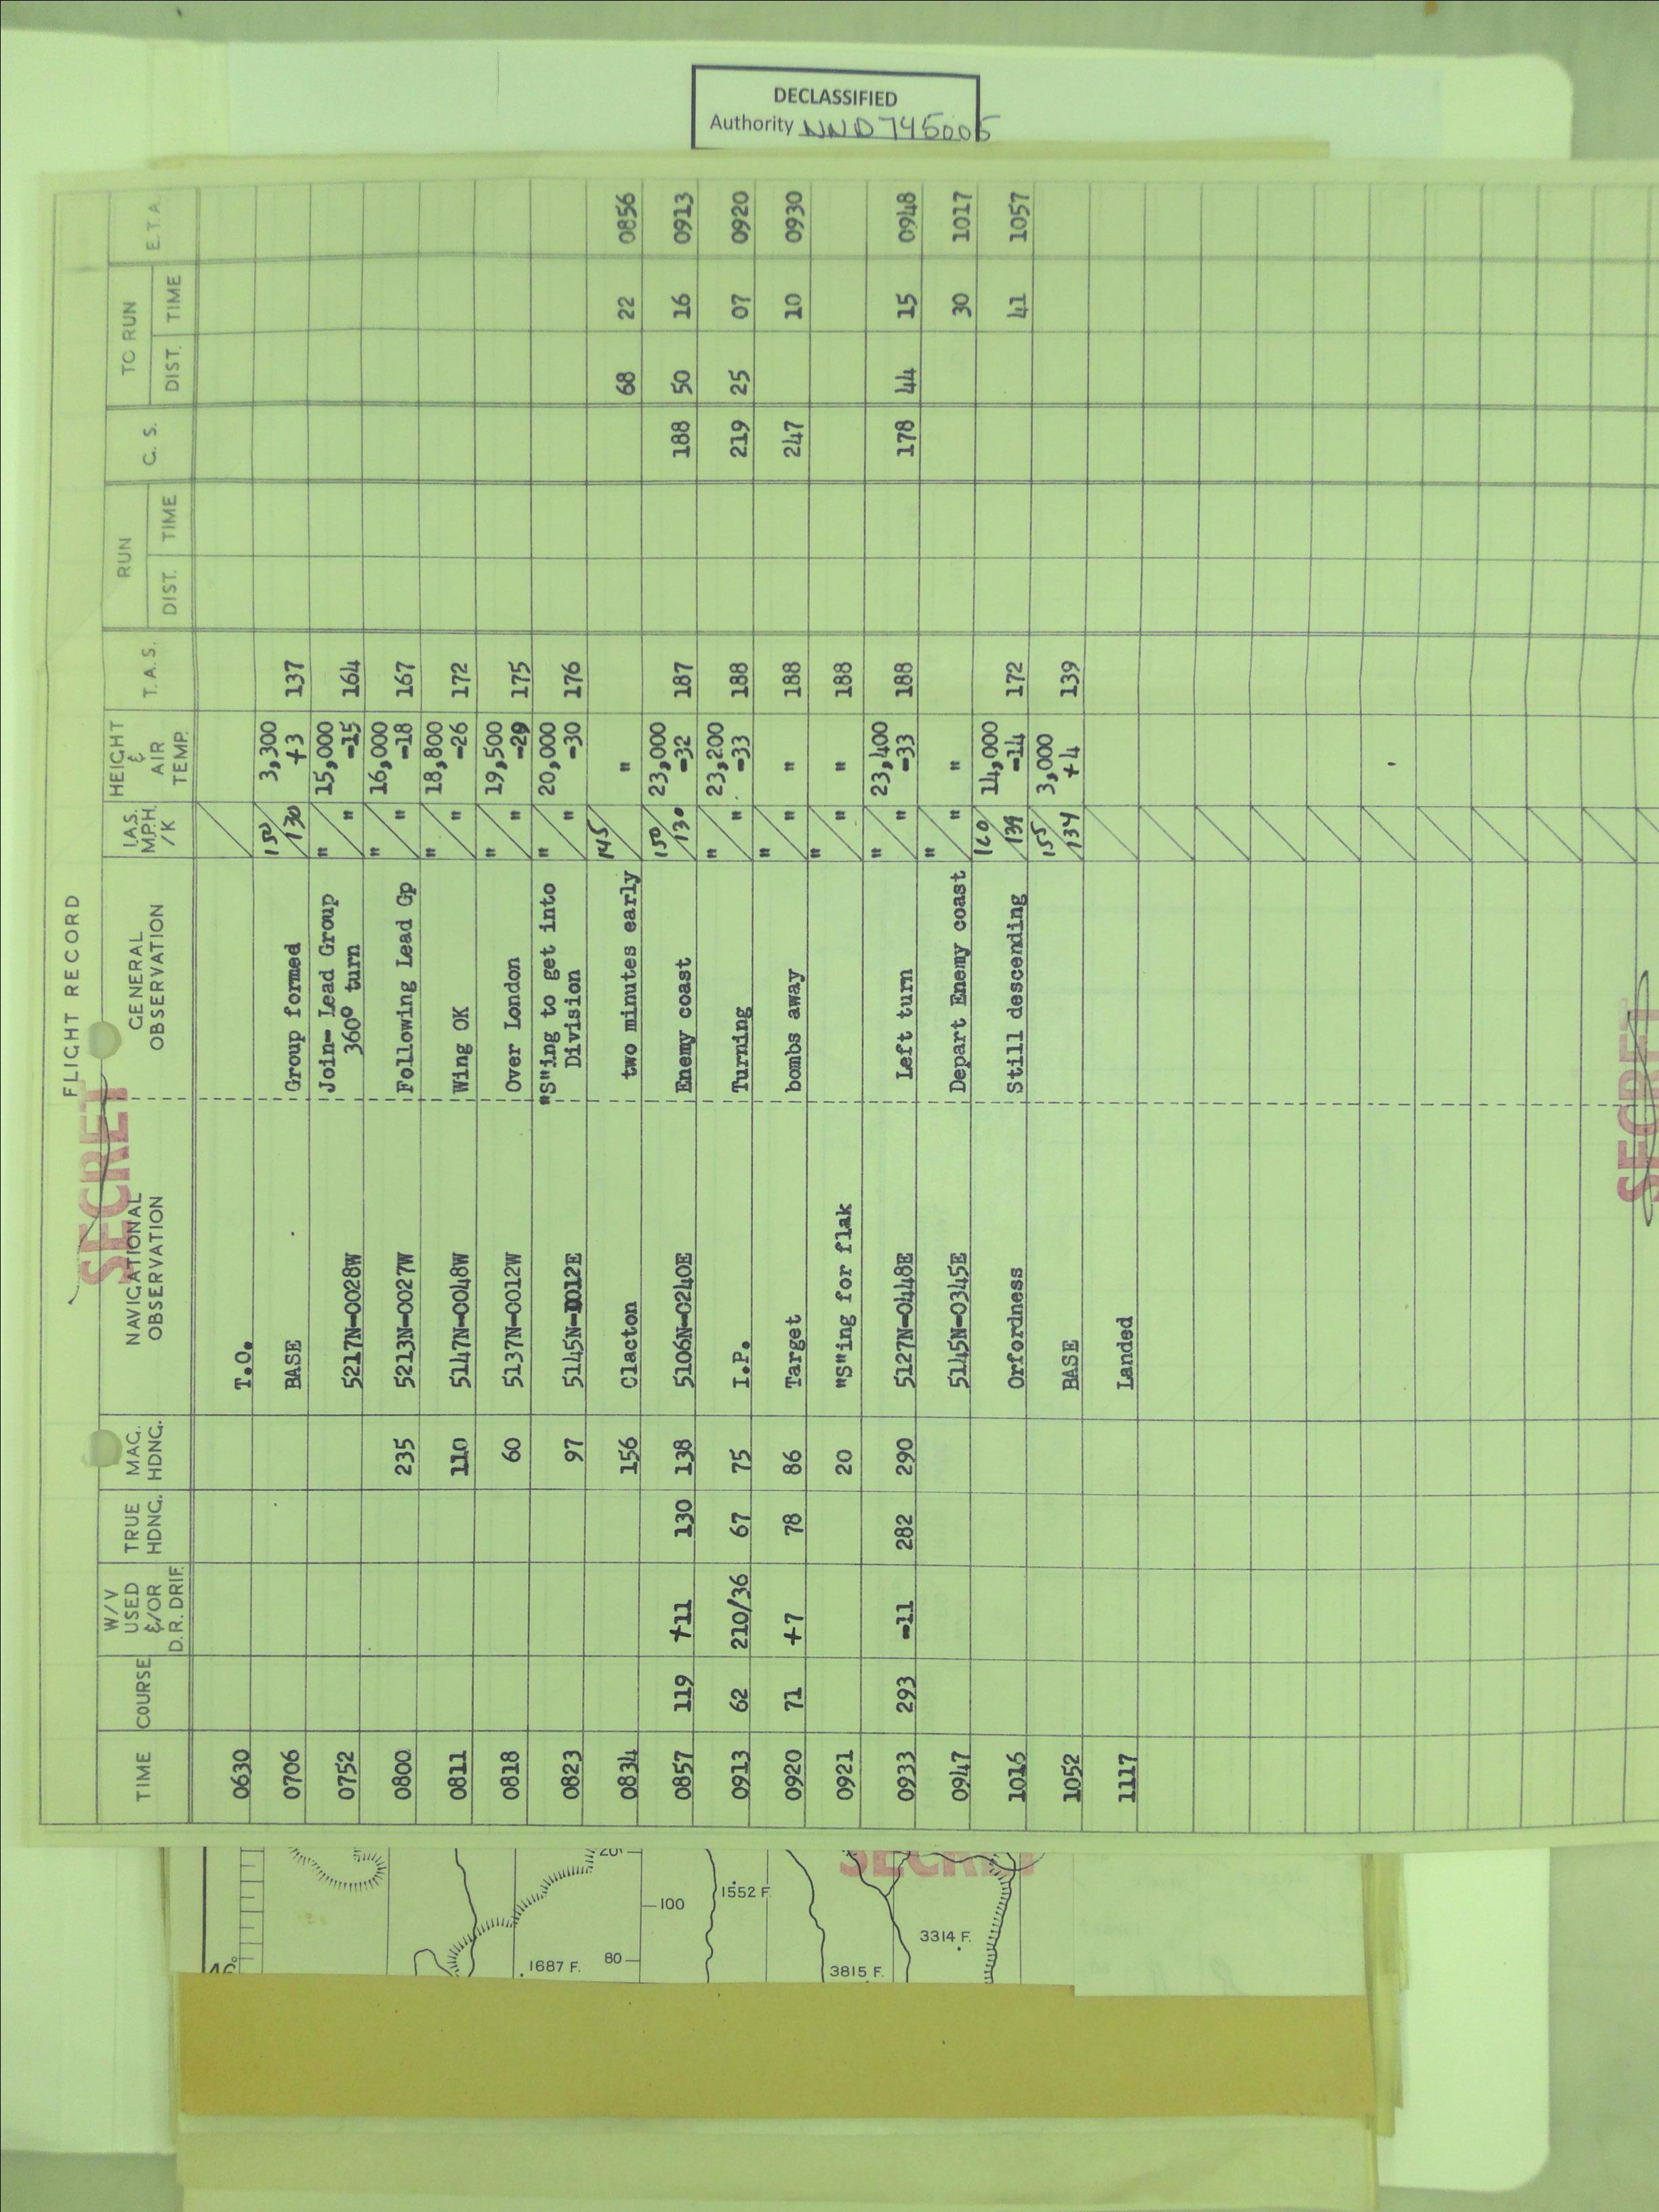 DECLASSIFIED
Authority NND 745005
FLIGHT RECORD
SECRET
TIME COURSE W/V USED &/OR D.R. DRIF. TRUE HDNG. MAG. HDNG. NAVIGATIONAL OBSERVATION GENERAL OBSERVATION I.A.S. M.P.H. /K HEIGHT & AIR TEMP. T.A.S. RUN DIST. TIME G.S. TO RUN DIST. TIME E.T.A.
0630 T.O.
0706 BASE Group formed 150/130 3,300 +3 137
0752 5217N-0028W Join- Lead Group 360° turn " " 15,000 -15 164
0800 235 5213N-0027W Following Lead Gp " " 16,000 -18 167
0811 110 5147N-0048W Wing OK " " 18,800 -26 172
0818 60 5137N-0012W Over London " " 19,500 -29 175
0823 97 5145N-0012E "S"ing to get into Division " " 20,000 -30 176
0834 156 Clacton two minutes early 145 " 68 22 0856
0857 119 +11 130 138 5106N-0240E Enemy coast 150/130 23,000 -32 187 188 50 16 0913
0913 62 210/36 67 75 I.P. Turning " " 23,200 -33 188 219 25 07 0920
0920 71 +7 78 86 Target bombs away " " " 188 247 10 0930
0921 20 "S"ing for flak " " " 188
0933 293 -11 282 290 5127N-0448E Left turn " " 23,400 -33 188 178 44 15 0948
0947 5145N-0345E Depart Enemy coast " " " 30 1017
1016 Orfordness Still descending 160/139 14,000 -14 172 41 1057
1052 BASE 155/134 3,000 +4 139
1117 Landed
SECRET
SECRET
20'
100
80
1552 F.
1687 F.
3314 F.
3815 F.